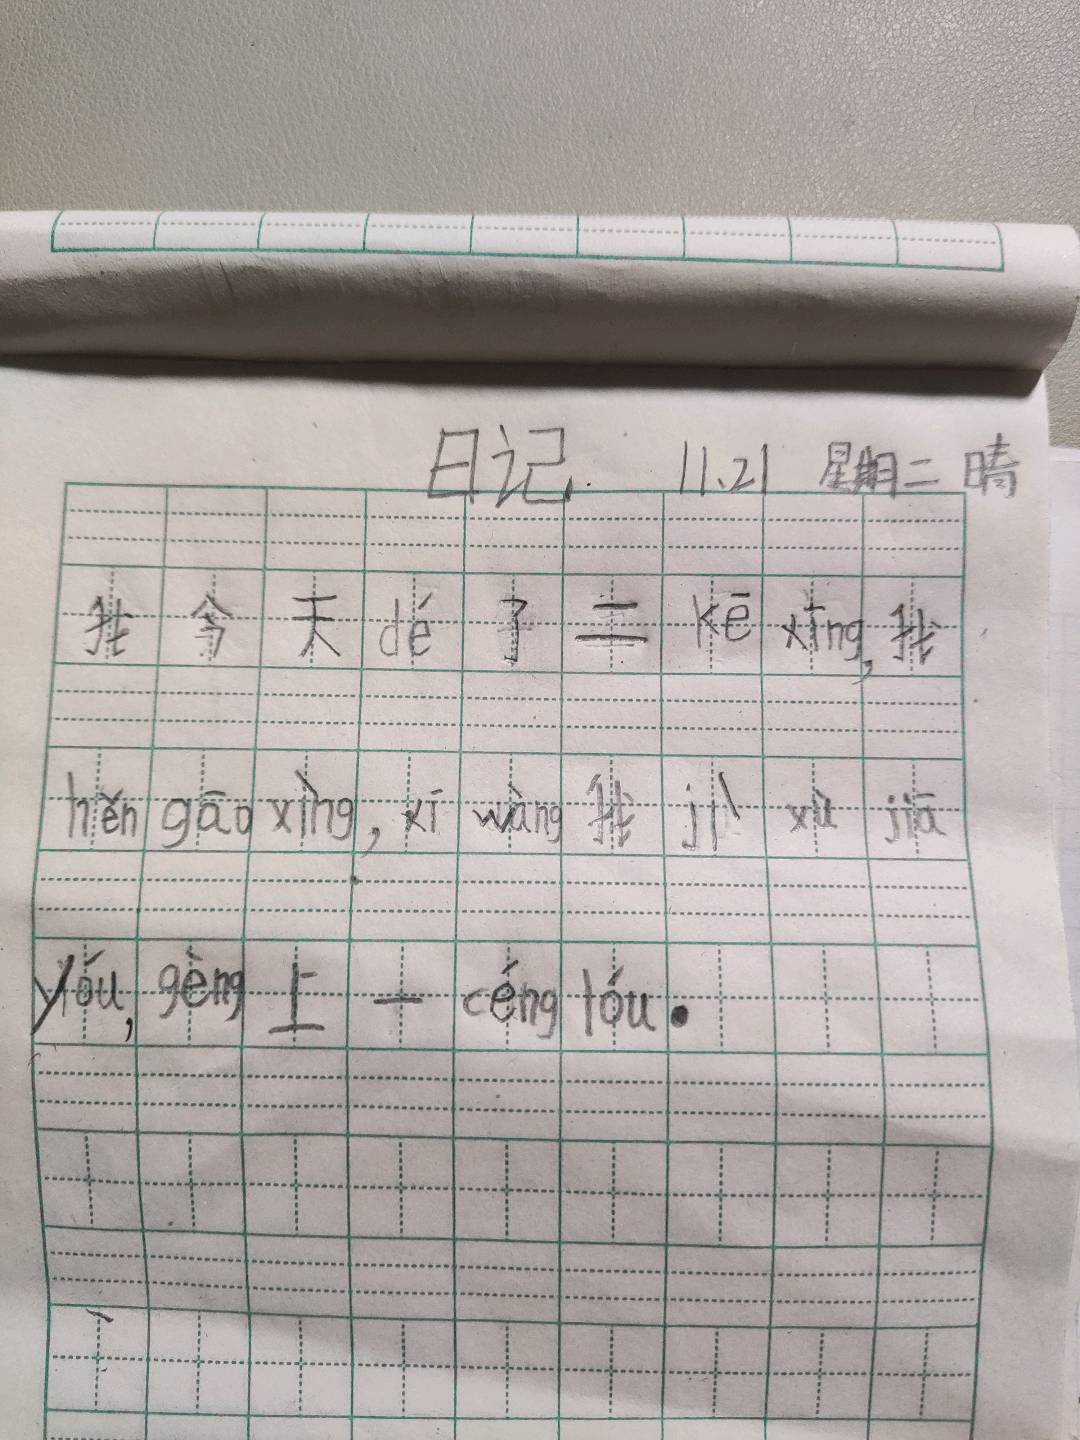 日记. 11.21 星期二 晴
我今天 dé 了二 kē xīng, 我
hěn gāo xìng, xī wàng 我 jì xù jiā
yóu, gèng 上一 céng lóu.